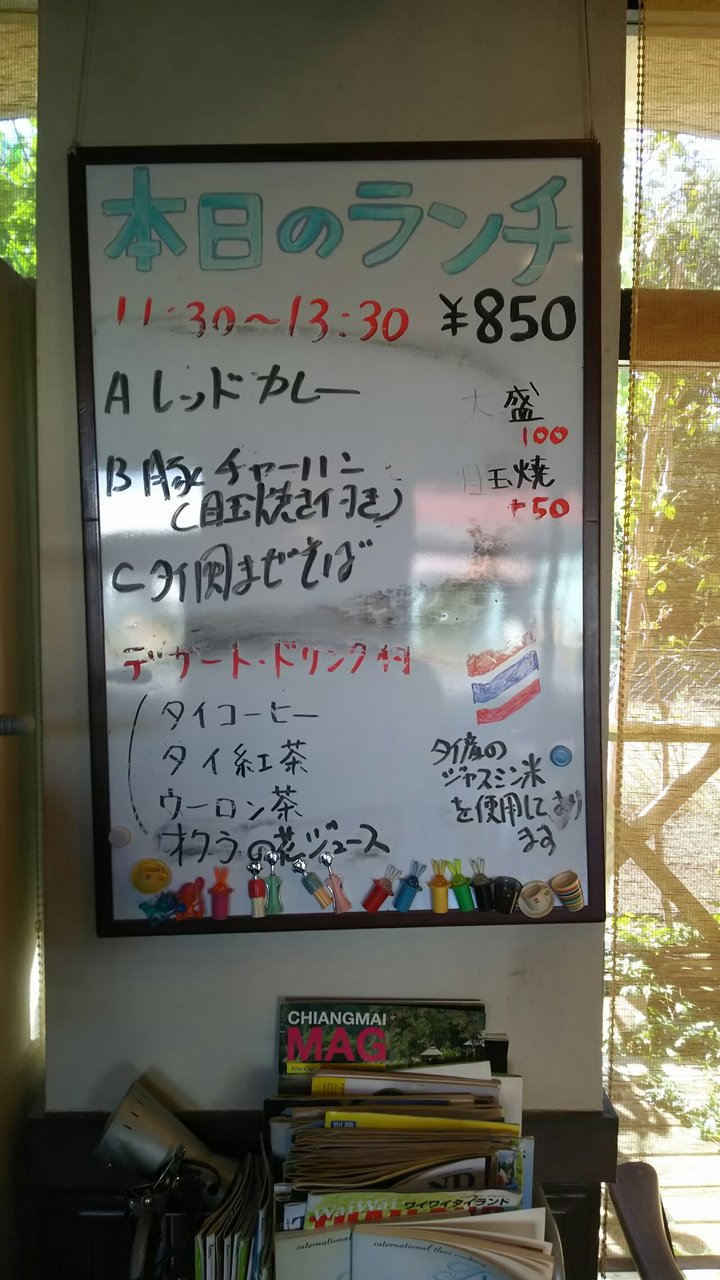 本日のランチ
11:30～13:30 ¥850
A レッドカレー
大盛
100
B 豚チャーハン
(目玉焼き付き)
目玉焼
+50
C タイ風まぜそば
デザート・ドリンク付
タイコーヒー
タイ紅茶
ウーロン茶
オクラの花ジュース
タイ産の
ジャスミン米
を使用しており
ます
CHIANGMAI
MAG
Free Copy
ND
WaiWai ワイワイタイランド
international
international thai